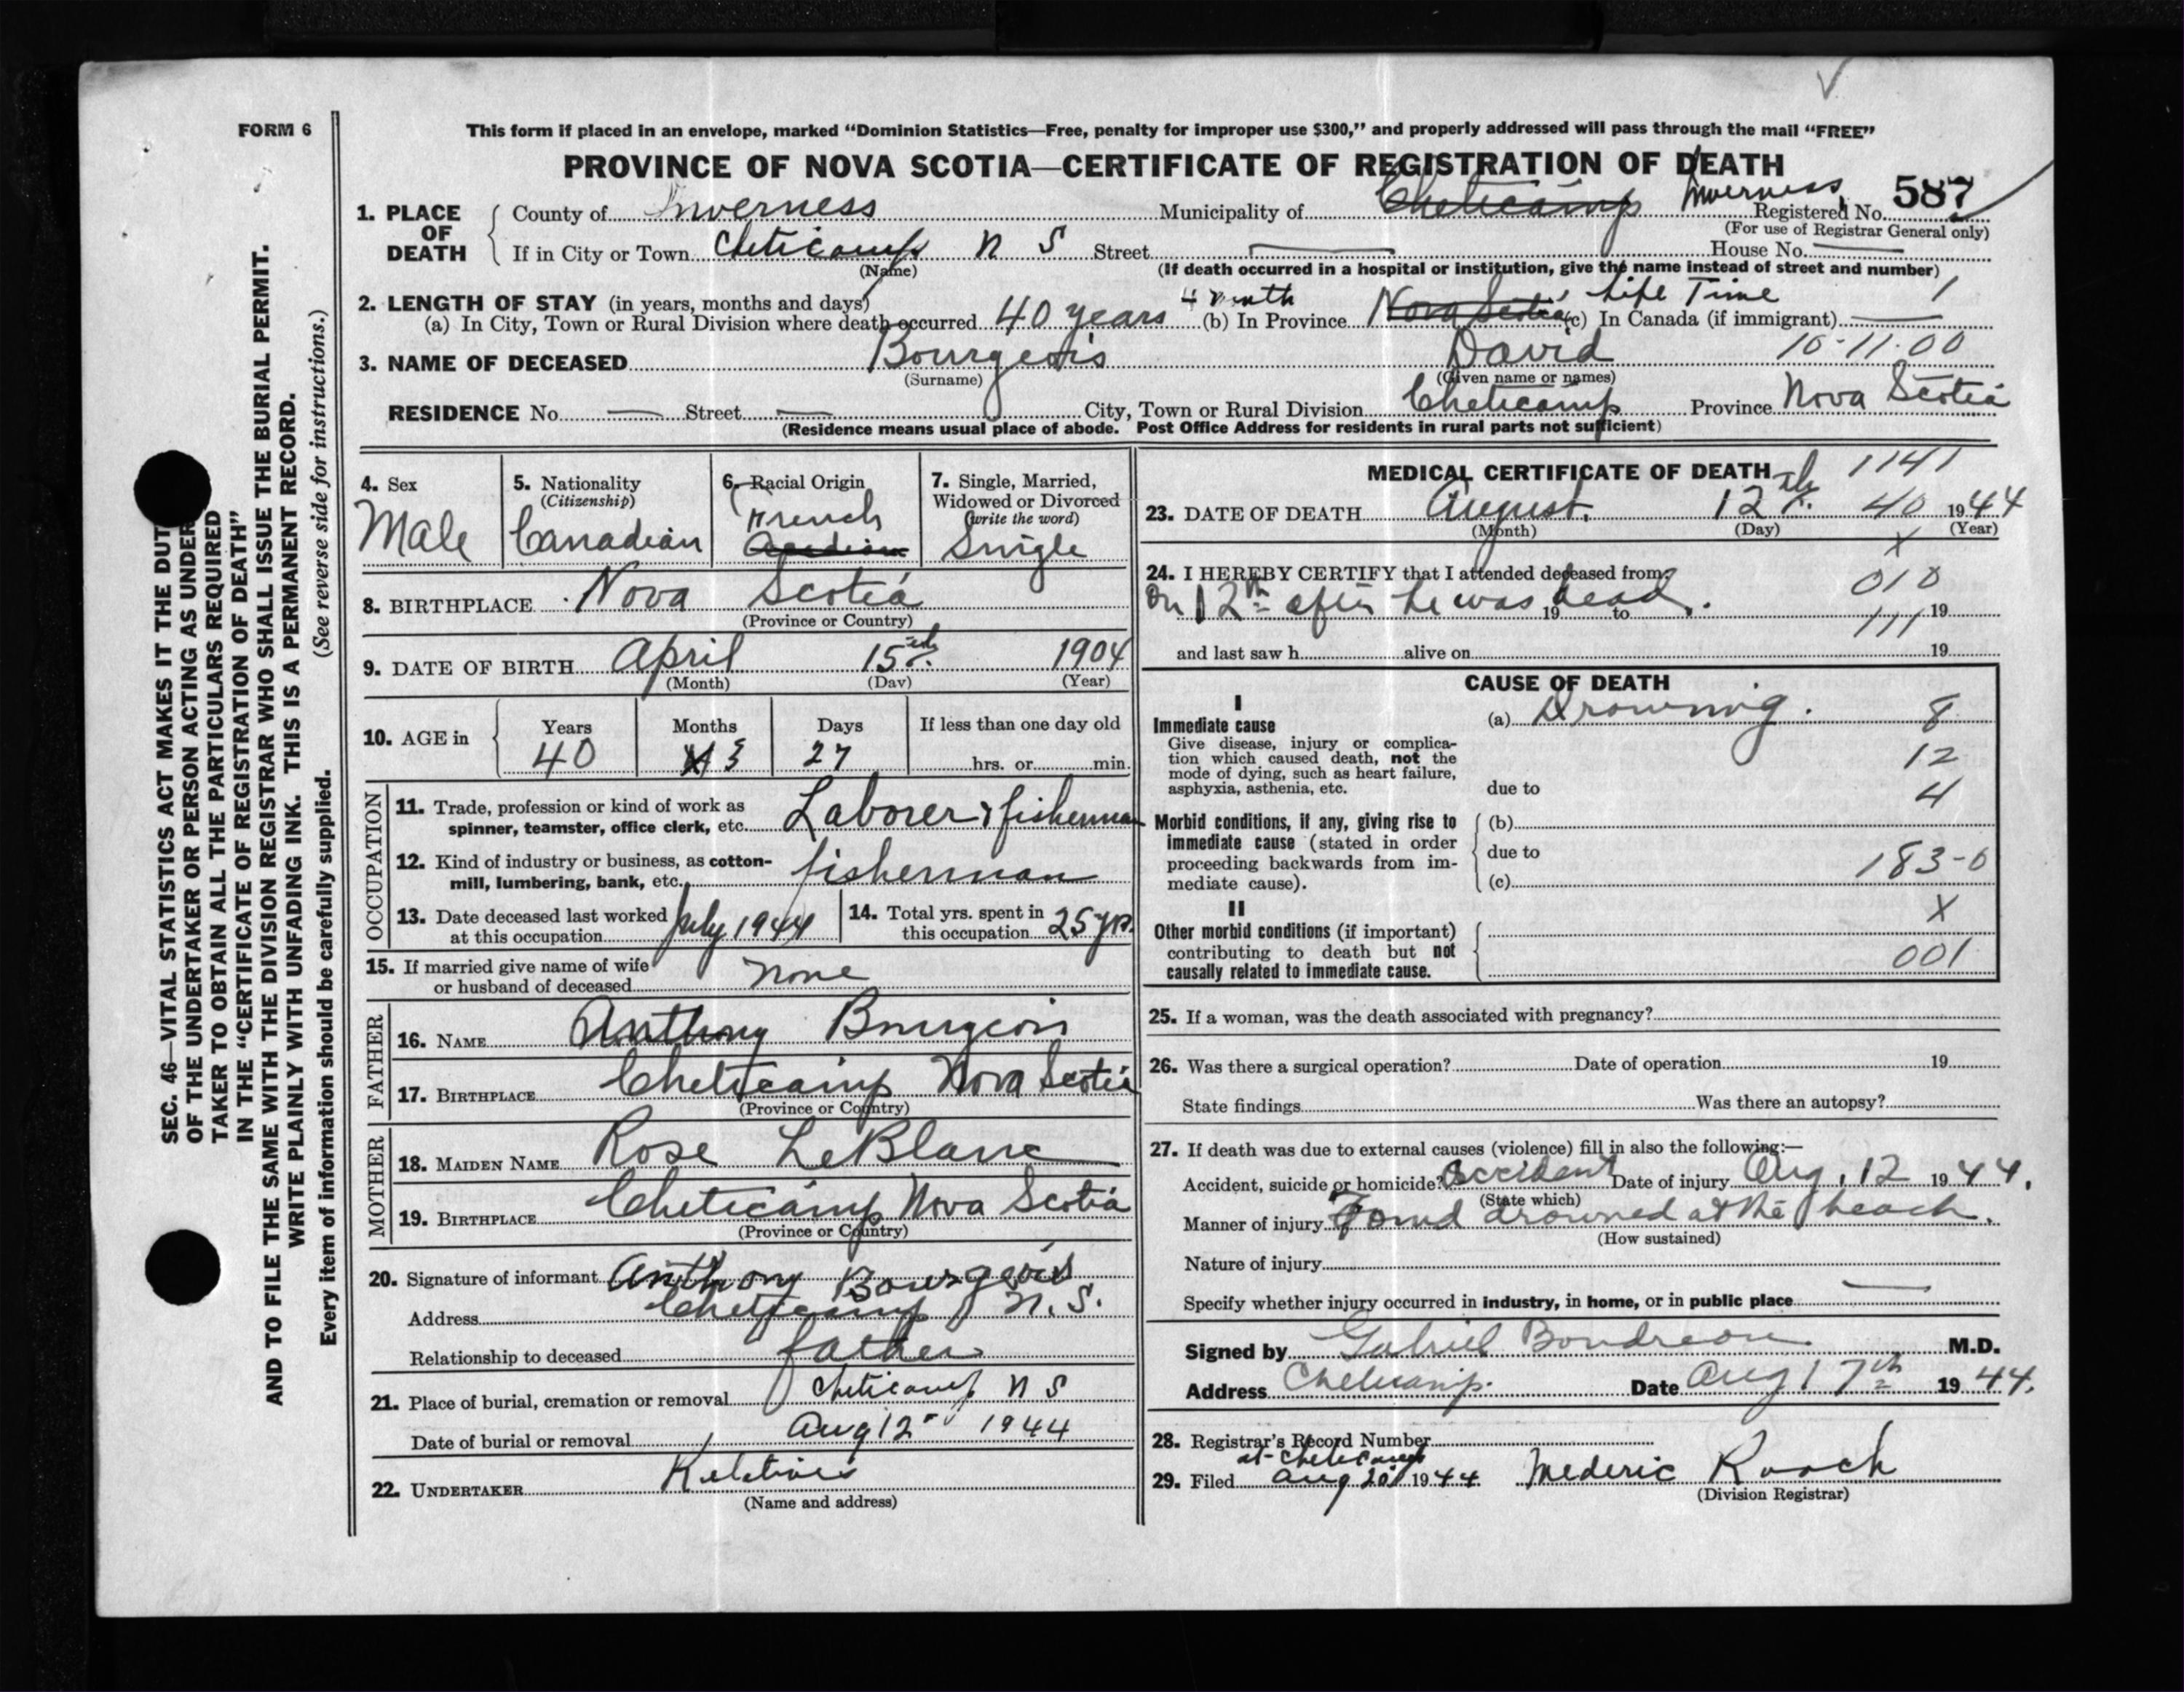 FORM 6
This form if placed in an envelope, marked “Dominion Statistics—Free, penalty for improper use $300,” and properly addressed will pass through the mail “FREE”
PROVINCE OF NOVA SCOTIA—CERTIFICATE OF REGISTRATION OF DEATH
1. PLACE OF DEATH County of Inverness Municipality of Cheticamp Inverness Registered No. 587
(For use of Registrar General only)
If in City or Town Cheticamp N S Street — House No. —
(Name) (If death occurred in a hospital or institution, give the name instead of street and number)
2. LENGTH OF STAY (in years, months and days)
(a) In City, Town or Rural Division where death occurred 40 years 4 month (b) In Province Nova Scotia Life Time (c) In Canada (if immigrant) — 1
3. NAME OF DECEASED Bourgeois David 10-11-00
(Surname) (Given name or names)
RESIDENCE No. — Street — City, Town or Rural Division Cheticamp Province Nova Scotia
(Residence means usual place of abode. Post Office Address for residents in rural parts not sufficient)
4. Sex Male
5. Nationality (Citizenship) Canadian
6. Racial Origin French Acadian
7. Single, Married, Widowed or Divorced (write the word) Single
8. BIRTHPLACE Nova Scotia
(Province or Country)
9. DATE OF BIRTH April 15th 1904
(Month) (Day) (Year)
10. AGE in Years 40 Months 3 Days 27 If less than one day old hrs. or min.
OCCUPATION
11. Trade, profession or kind of work as spinner, teamster, office clerk, etc. Laborer & fisherman
12. Kind of industry or business, as cotton-mill, lumbering, bank, etc. fisherman
13. Date deceased last worked at this occupation July 1944
14. Total yrs. spent in this occupation 25 yrs.
15. If married give name of wife or husband of deceased None
FATHER
16. NAME Anthony Bourgeois
17. BIRTHPLACE Cheticamp Nova Scotia
(Province or Country)
MOTHER
18. MAIDEN NAME Rose LeBlanc
19. BIRTHPLACE Cheticamp Nova Scotia
(Province or Country)
20. Signature of informant Anthony Bourgeois
Address Cheticamp N.S.
Relationship to deceased father
21. Place of burial, cremation or removal Cheticamp N S
Date of burial or removal Aug 12 1944
22. UNDERTAKER Relatives
(Name and address)
MEDICAL CERTIFICATE OF DEATH 1141
23. DATE OF DEATH August 12th 40 1944
(Month) (Day) (Year)
X
24. I HEREBY CERTIFY that I attended deceased from: 010
On 12th after he was dead. 19 to 19
111
and last saw h alive on 19
CAUSE OF DEATH
I
Immediate cause (a) Drowning. 8
Give disease, injury or complication which caused death, not the mode of dying, such as heart failure, asphyxia, asthenia, etc. 12
due to 4
Morbid conditions, if any, giving rise to immediate cause (stated in order proceeding backwards from immediate cause). (b)
due to
(c) 183-0
II X
Other morbid conditions (if important) contributing to death but not causally related to immediate cause. 001
25. If a woman, was the death associated with pregnancy?
26. Was there a surgical operation? Date of operation 19
State findings Was there an autopsy?
27. If death was due to external causes (violence) fill in also the following:—
Accident, suicide or homicide? Accident Date of injury Aug. 12 1944.
(State which)
Manner of injury Found drowned at the beach.
(How sustained)
Nature of injury
Specify whether injury occurred in industry, in home, or in public place —
Signed by Gabriel Boudreau M.D.
Address Cheticamp. Date Aug 17th 1944.
28. Registrar's Record Number
29. Filed at Cheticamp Aug 20 1944 Mederic Roach
(Division Registrar)
SEC. 46—VITAL STATISTICS ACT MAKES IT THE DUT
OF THE UNDERTAKER OR PERSON ACTING AS UNDER
TAKER TO OBTAIN ALL THE PARTICULARS REQUIRED
IN THE “CERTIFICATE OF REGISTRATION OF DEATH”
AND TO FILE THE SAME WITH THE DIVISION REGISTRAR WHO SHALL ISSUE THE BURIAL PERMIT.
WRITE PLAINLY WITH UNFADING INK. THIS IS A PERMANENT RECORD.
Every item of information should be carefully supplied. (See reverse side for instructions.)